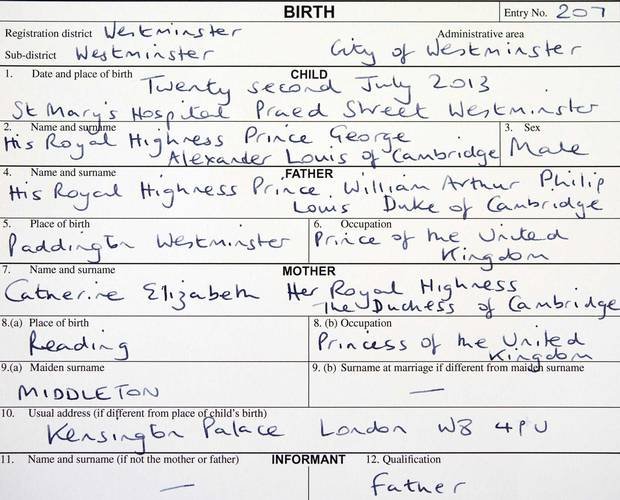 BIRTH Entry No. 207
Registration district Westminster Administrative area
Sub-district Westminster City of Westminster
1. Date and place of birth CHILD
Twenty second July 2013
St Mary's Hospital Praed Street Westminster
2. Name and surname 3. Sex
His Royal Highness Prince George
Alexander Louis of Cambridge Male
4. Name and surname FATHER
His Royal Highness Prince William Arthur Philip
Louis Duke of Cambridge
5. Place of birth 6. Occupation
Paddington Westminster Prince of the United
Kingdom
7. Name and surname MOTHER
Catherine Elizabeth Her Royal Highness
The Duchess of Cambridge
8.(a) Place of birth 8. (b) Occupation
Reading Princess of the United
Kingdom
9.(a) Maiden surname 9. (b) Surname at marriage if different from maiden surname
MIDDLETON —
10. Usual address (if different from place of child's birth)
Kensington Palace London W8 4PU
11. Name and surname (if not the mother or father) INFORMANT 12. Qualification
— Father